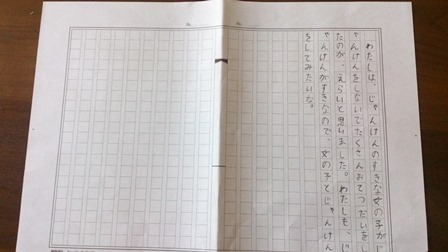 わたしは、じゃんけんのすきな女の子がじ
ゃんけんをしないでたくさんおてつだいをし
たのが、えらいと思いました。わたしも、じ
ゃんけんがすきなので、女の子とじゃんけん
をしてみたいな。